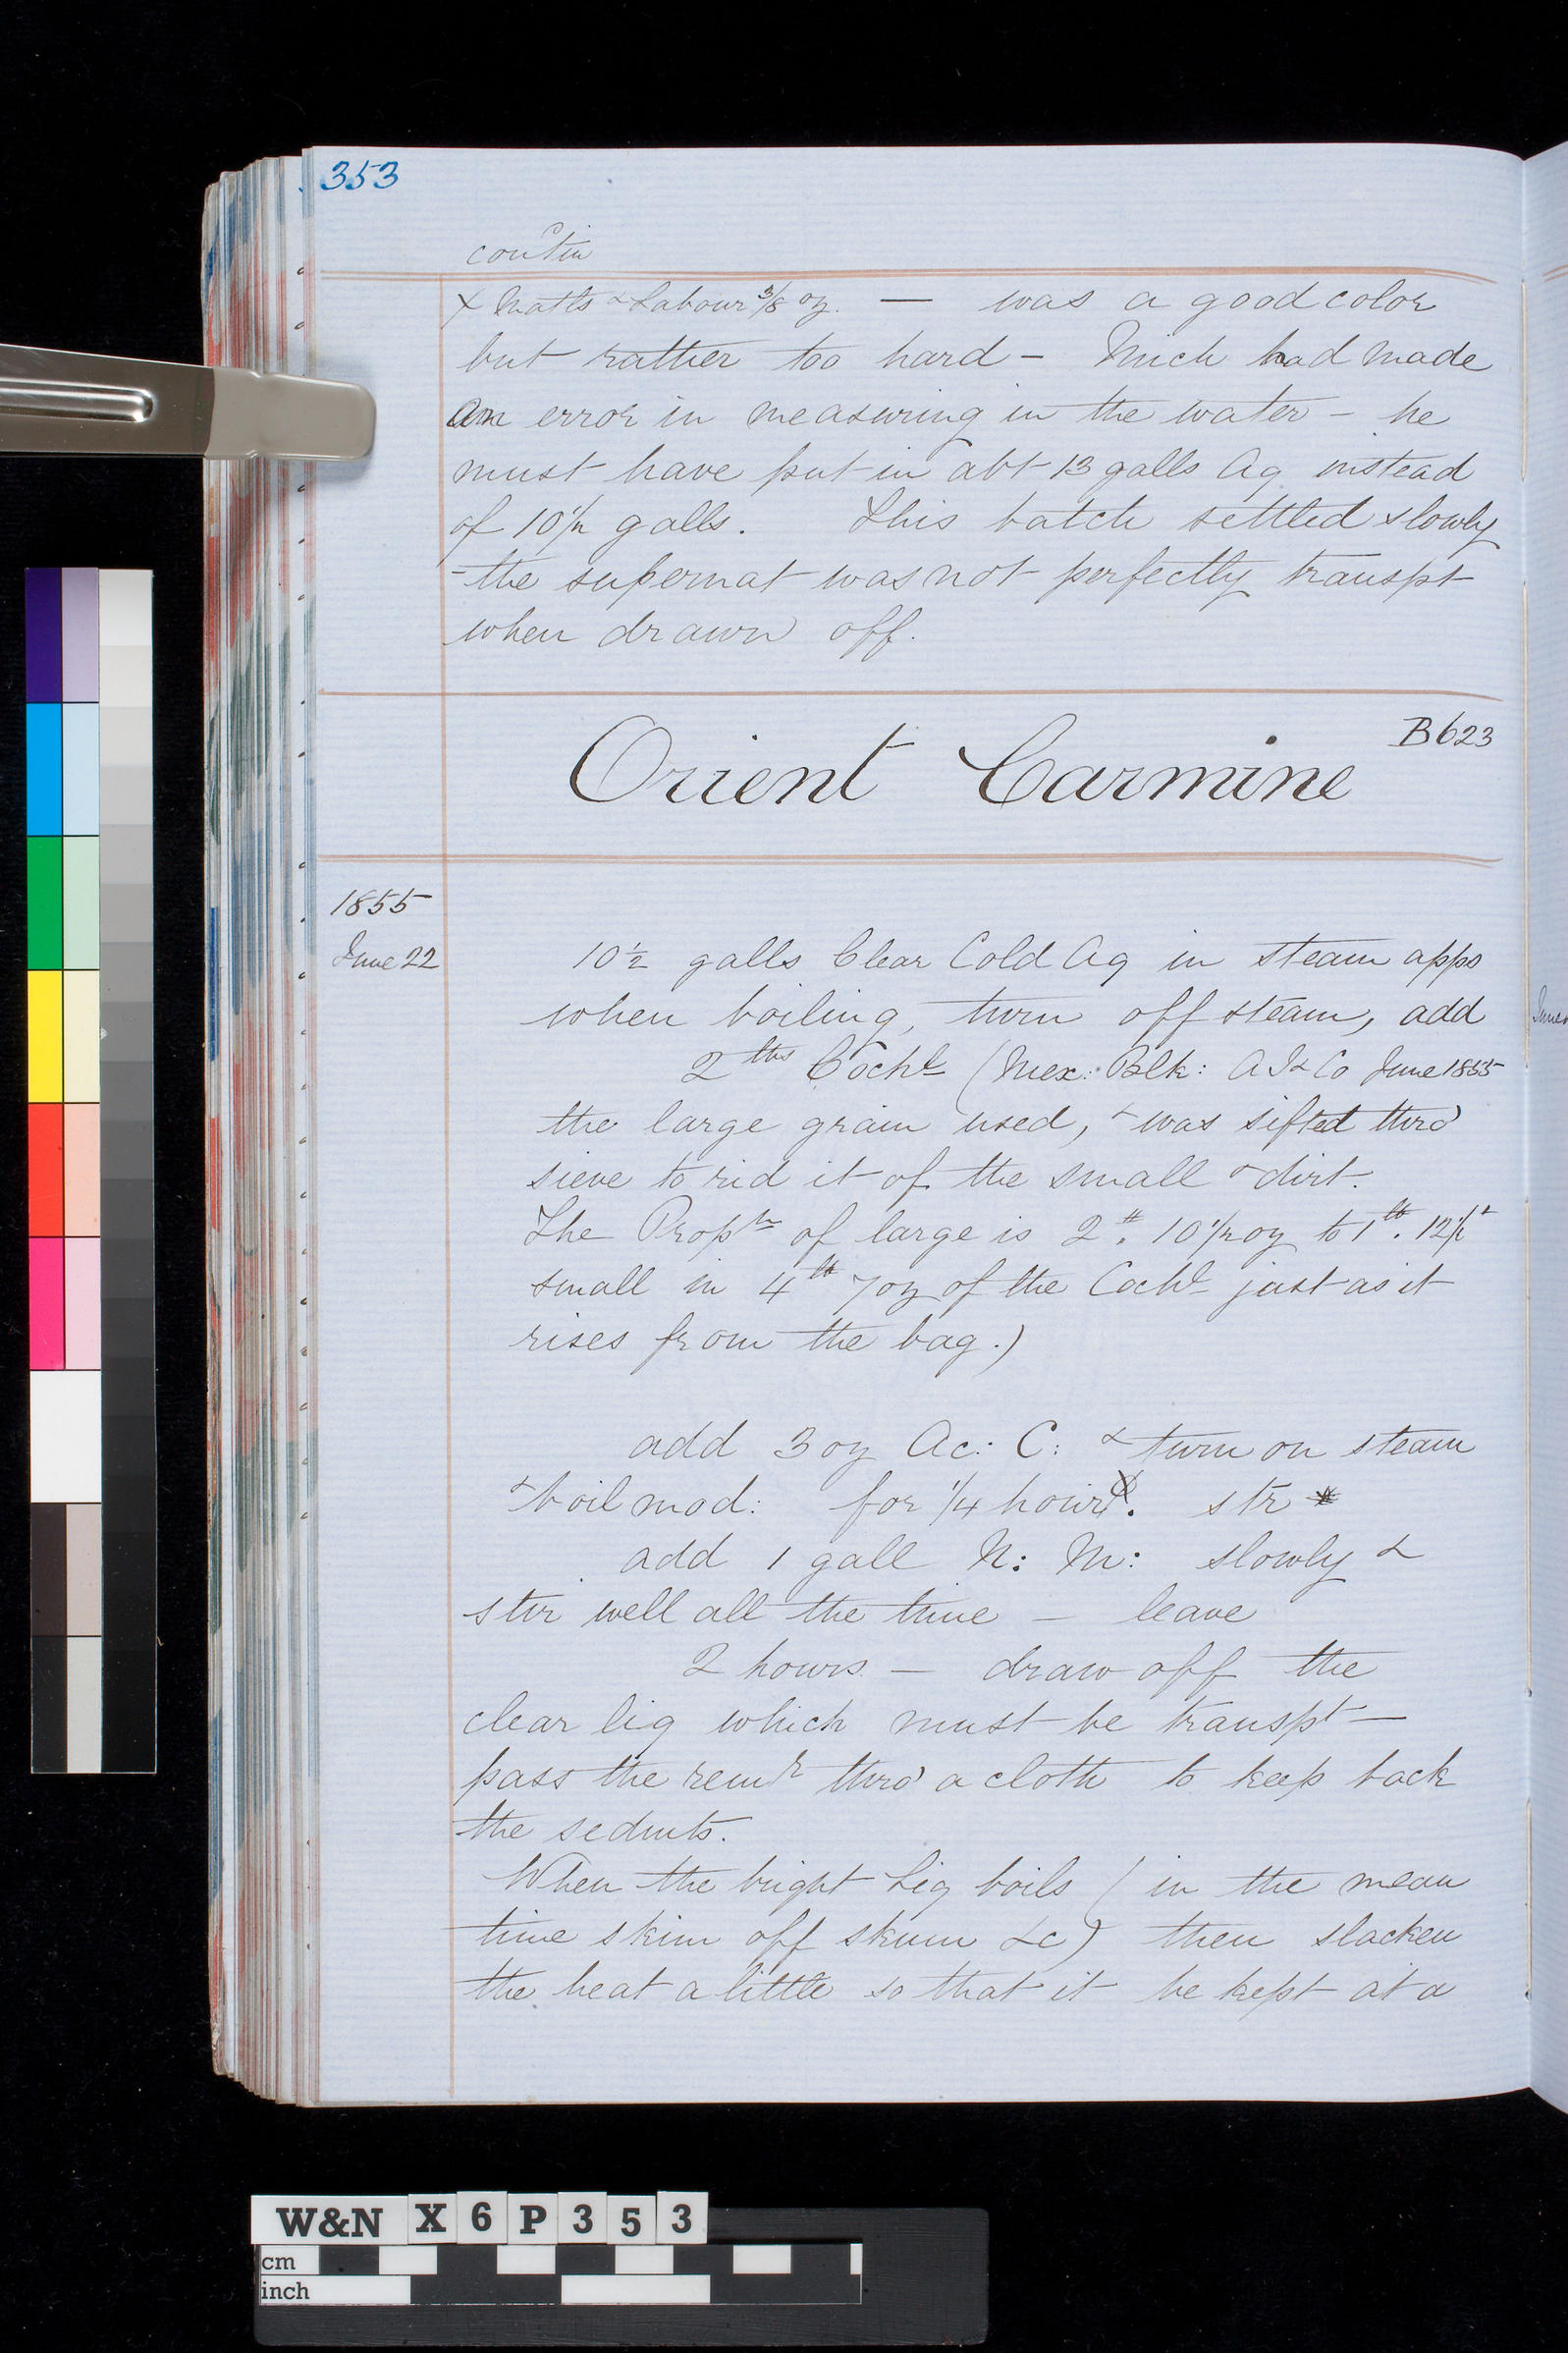 353
contin
x Matls & Labour 3/8 oz. — was a good color
but rather too hard - Mich had made
an error in measuring in the water - he
must have put in abt 13 galls Aq instead
of 10 1/2 galls. This batch settled slowly
- the supernat was not perfectly transpt
when drawn off.
B623
Orient Carmine
1855
June 22
10 1/2 galls Clear Cold Aq in steam apps
when boiling, turn off steam, add
2 lbs Cochl (Mex: Blk: A J & Co June 1855
the large grain used, & was sifted thro'
sieve to rid it of the small & dirt.
The Proptn of large is 2 lb. 10 1/2 oz to 1 lb. 12 1/2
small in 4 lb 7 oz of the Cochl just as it
rises from the bag.)
add 3 oz Ac: C: & turn on steam
& boil mod: for 1/4 hour. str
add 1 gall N: M: slowly &
stir well all the time — leave
2 hours — draw off the
clear liq which must be transpt —
pass the remr thro' a cloth to keep back
the sedmts.
When the bright Liq boils (in the mean
time skim off skum &c) then slacken
the heat a little so that it be kept at a
June
W&N X6P353
cm
inch